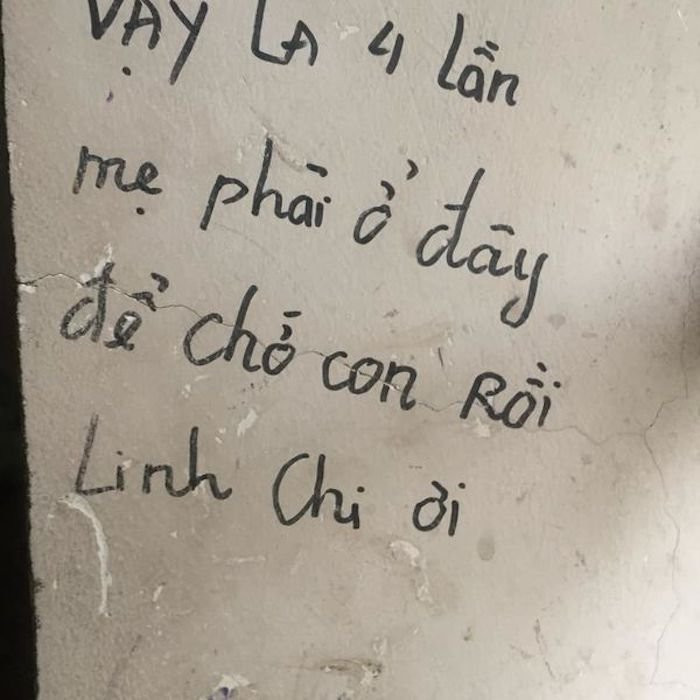 VẬY LÀ 4 lần
mẹ phải ở đây
để chở con Rồi
Linh Chi ơi